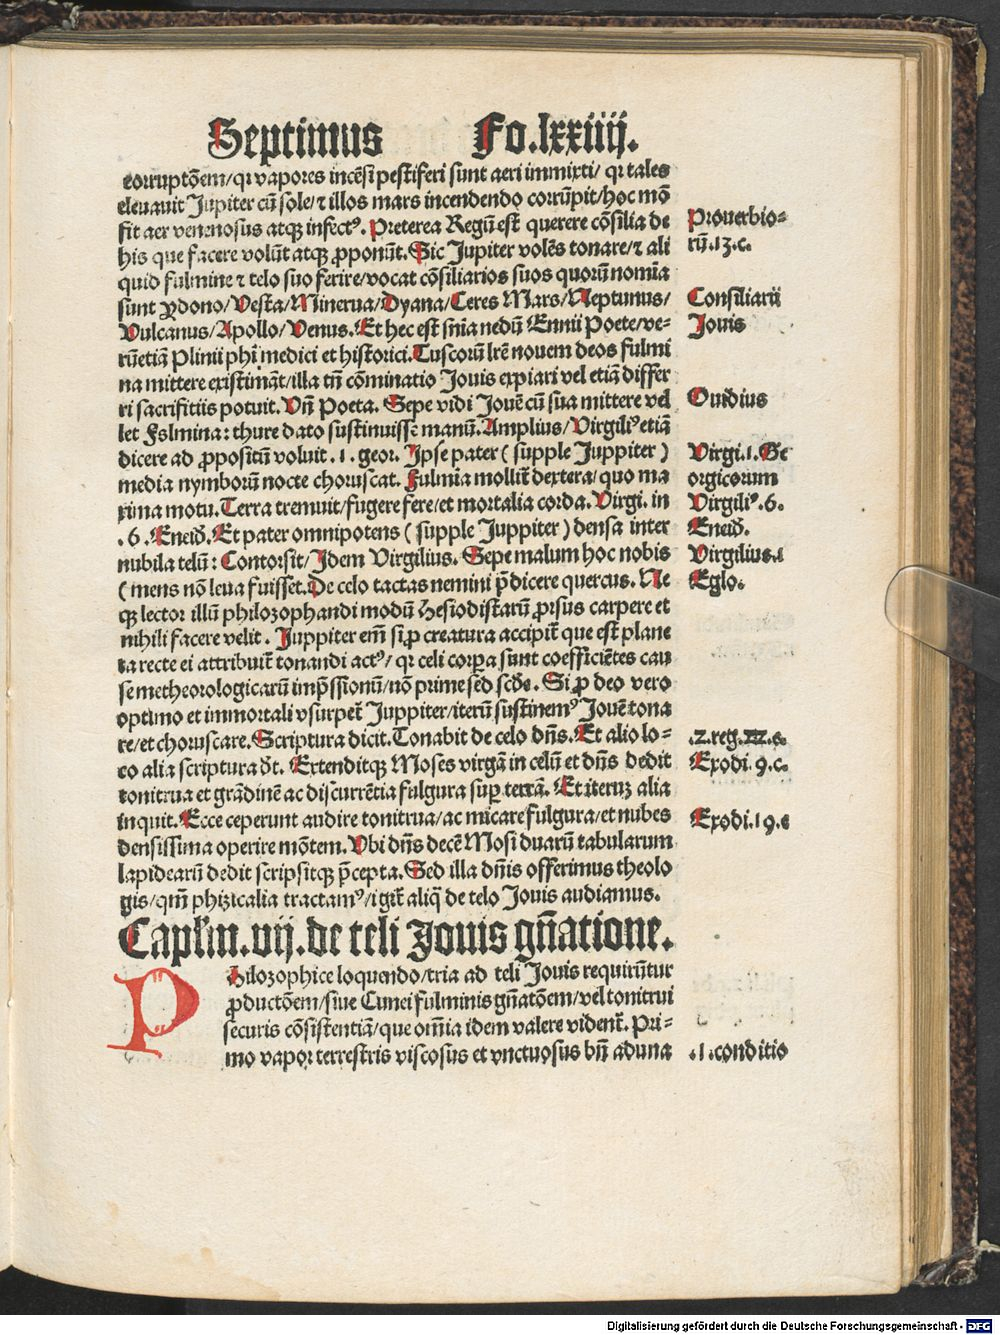 Septimus Fo.lxxiiij.
corruptōem/qꝛ vapores incēsi pestiferi sunt aeri immixti/ qꝛ tales
eleuauit Jupiter cū sole/ꝛ illos mars incendendo corrūpit/hoc mō
fit aer venenosus atqꝫ infectꝰ. Preterea Regū est querere cōsilia de
his que facere volūt atqꝫ ꝓponūt. Sic Jupiter volēs tonare/ꝛ ali
quid fulmine ꝛ telo suo ferire/vocat cōsiliarios suos quorū nomīa
sunt Ꝓdono/Vesta/Minerua/Dyana/Ceres Mars/Neptunus/
Vulcanus/Apollo/Venus. Et hec est snīa nedū Ennii Poete/ve-
rūetiā Plinii phī medici et historici. Tuscorū lrē nouem deos fulmi
na mittere existimāt/illa tn̄ cōminatio Jouis expiari vel etiā differ
ri sacrifitiis potuit. Vn̄ Poeta. Sepe vidi Jouē cū sua mittere vel
let Fslmina: thure dato sustinuisse manū. Amplius/Virgiliꝰ etiā
dicere ad ꝓpositū voluit .1. geor. Ipse pater ( supple Juppiter )
media nymborū nocte choruscat. Fulmīa mollīt dextera/quo ma
xima motu. Terra tremuit/fugere fere/et mortalia corda. Virgi. in
.6. Eneid. Et pater omnipotens ( supple Juppiter ) densa inter
nubila telū: Contorsit/Idem Virgilius. Sepe malum hoc nobis
( mens nō leua fuisset. De celo tactas nemini p̄dicere quercus. Ne
qꝫ lector illū philozophandi modū Hesiodistarū ꝓrsus carpere et
nihili facere velit . Juppiter em̄ si ꝓ creatura accipit̄ que est plane
ta recte ei attribuit̄ tonandi actꝰ/ qꝛ celi corꝑa sunt coefficiētes cau
se metheorologicarū imp̄ssionū/nō prime sed scd̄e. Si ꝓ deo vero
optimo et immortali vsurpet̄ Juppiter/iterū sustinemꝰ Jouē tona
re/et choruscare. Scriptura dicit. Tonabit de celo dn̄s. Et alio lo-
co alia scriptura d̄t. Extenditqꝫ Moses virgā in celū et dn̄s dedit
tonitrua et grādinē ac discurrētia fulgura suꝑ terrā. Et iteruꝫ alia
inquit. Ecce ceperunt audire tonitrua/ac micare fulgura/et nubes
densissima operire mōtem. Vbi dn̄s decē Mosi duarū tabularum
lapidearū dedit scripsitqꝫ p̄cepta. Sed illa dn̄is offerimus theolo
gis/qm̄ phizicalia tractamꝰ/igit̄ aliq̄ de telo Jouis audiamus.
Caplm̄.vij.de teli Jouis gn̄atione.
Philozophice loquendo/tria ad teli Jouis requirūtur
ꝓductōem/siue Cunei fulminis gn̄atōem/vel tonitrui
securis cōsistentiā/que om̄ia idem valere vident̄. Pri-
mo vapor terrestris viscosus et vnctuosus bn̄ aduna
Prouerbio-
rū.13.c.
Consiliarii
Jouis
Ouidius
Virgi.1.Ge
orgicorum
Virgiliꝰ.6.
Eneid.
Virgilius.1
Eglo.
.2.reg.22.c.
Exodi.9.c.
Exodi.19.c
.1.conditio
Digitalisierung gefördert durch die Deutsche Forschungsgemeinschaft - DFG